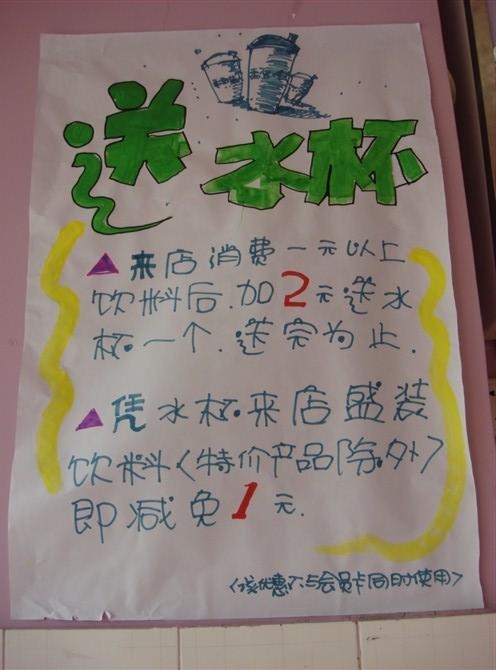 送水杯
▲来店消费一元以上
饮料后.加2元送水
杯一个.送完为止.
▲凭水杯来店盛装
饮料〈特价产品除外〉
即减免1元.
〈该优惠不与会员卡同时使用〉